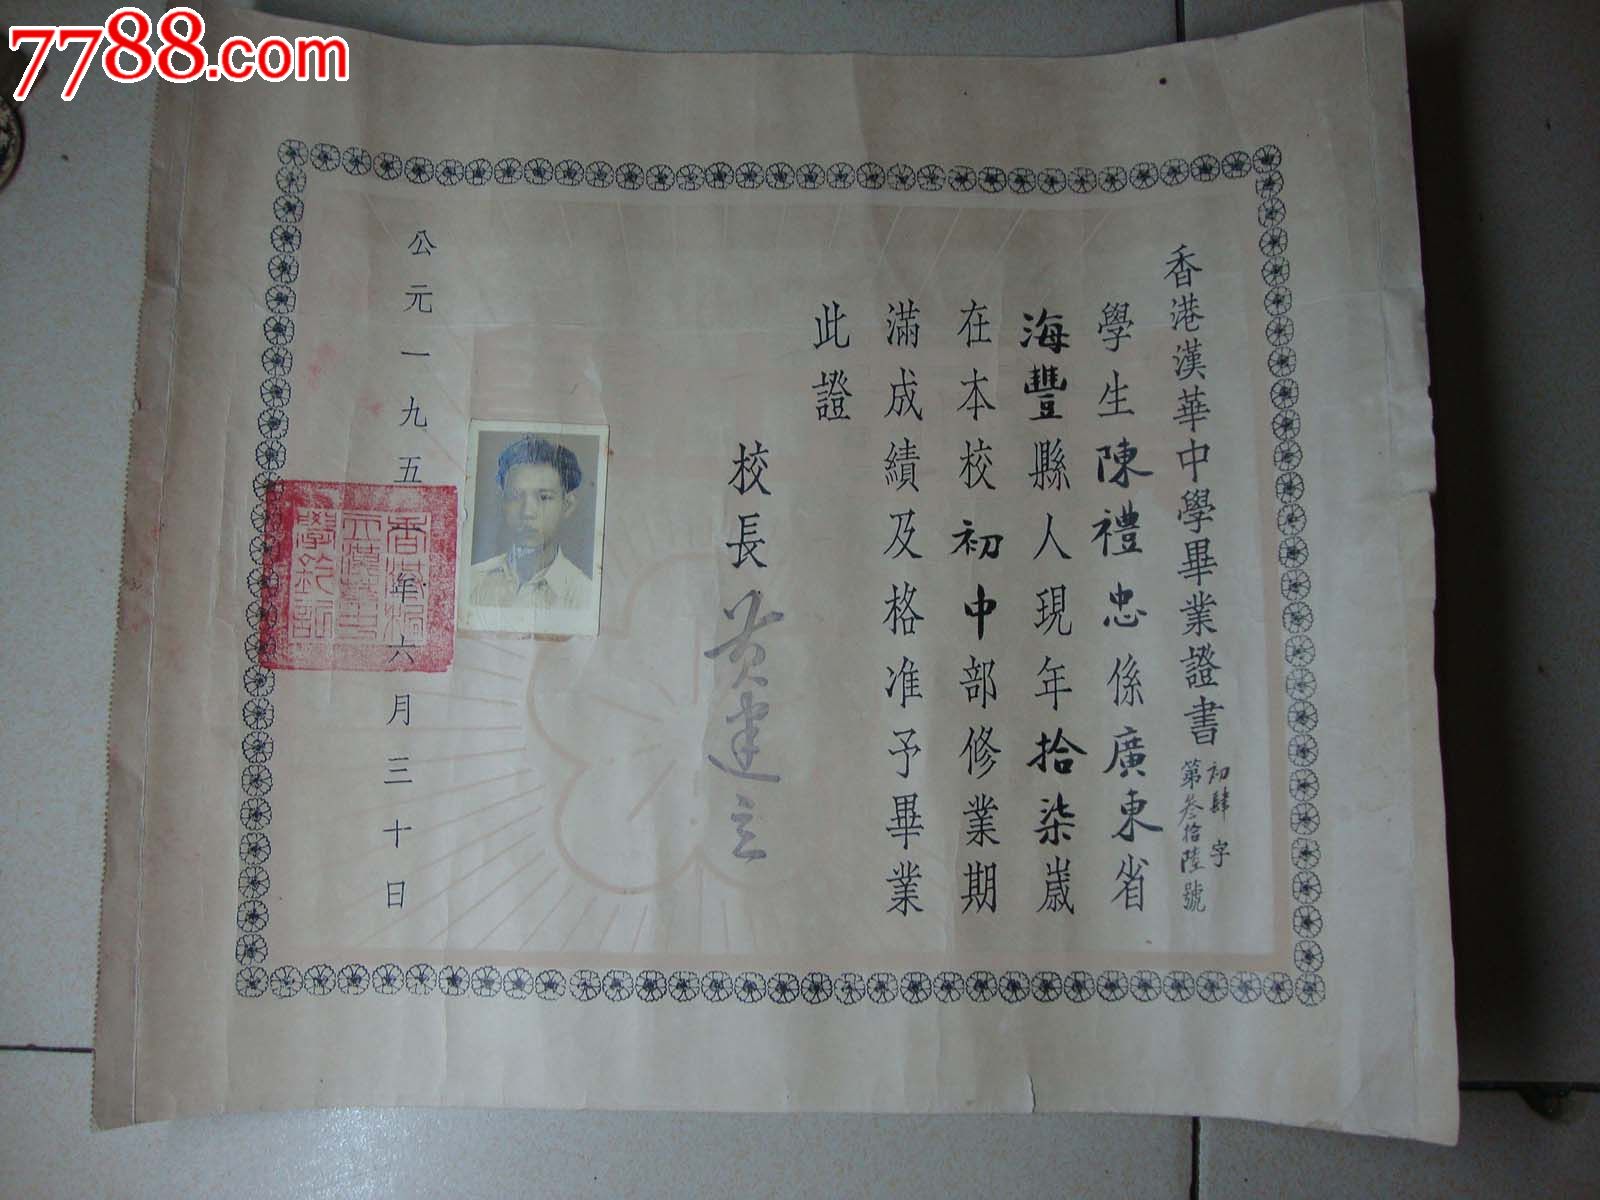 7788.com
香港漢華中學畢業證書
初肆字
第叁拾陸號
學生陳禮忠係廣東省
海豐縣人現年拾柒歲
在本校初中部修業期
滿成績及格准予畢業
此證
校長黃建立
公元一九五年六月三十日
香港私
立漢華中
學鈐記